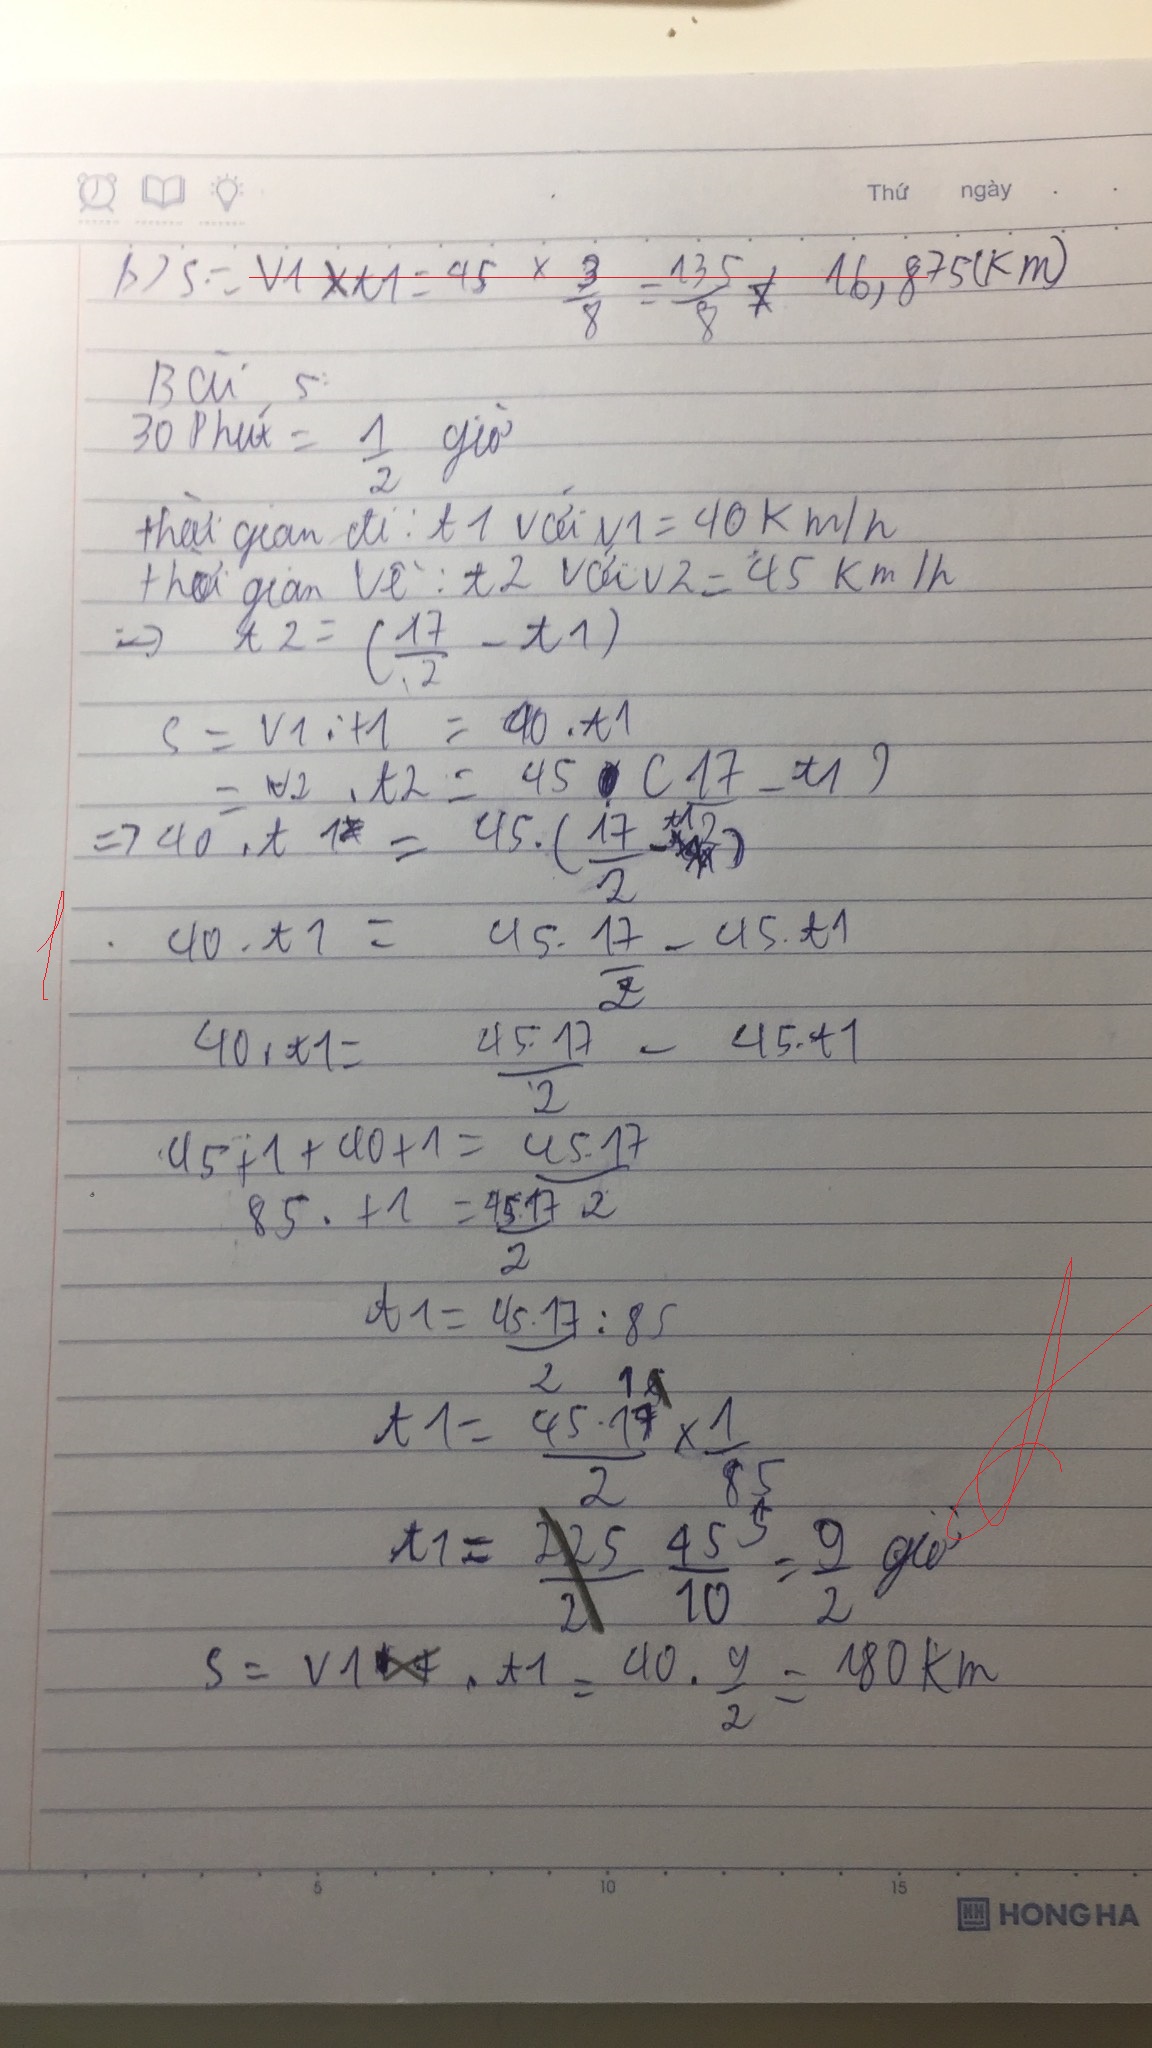 Thứ ngày
b) S = V1 x t1 = 45 x 3/8 = 135/8 = 16,875(Km)
Bài 5:
30 Phút = 1/2 giờ
thời gian đi: t1 với v1 = 40 Km/h
thời gian Về: t2 với v2 = 45 Km/h
=> t2 = (17/2 - t1)
S = V1 . t1 = 40 . t1
= v2 . t2 = 45 . (17/2 - t1)
=> 40 . t1 = 45 . (17/2 - t1)
40 . t1 = 45 . 17/2 - 45 . t1
40 . t1 = 45.17/2 - 45 . t1
45t1 + 40t1 = 45.17/2
85 . t1 = 45.17/2
t1 = 45.17/2 : 85
t1 = 45.17/2 x 1/85
t1 = 45/10 = 9/2 giờ
S = V1 . t1 = 40 . 9/2 = 180 Km
5 10 15
HONG HA